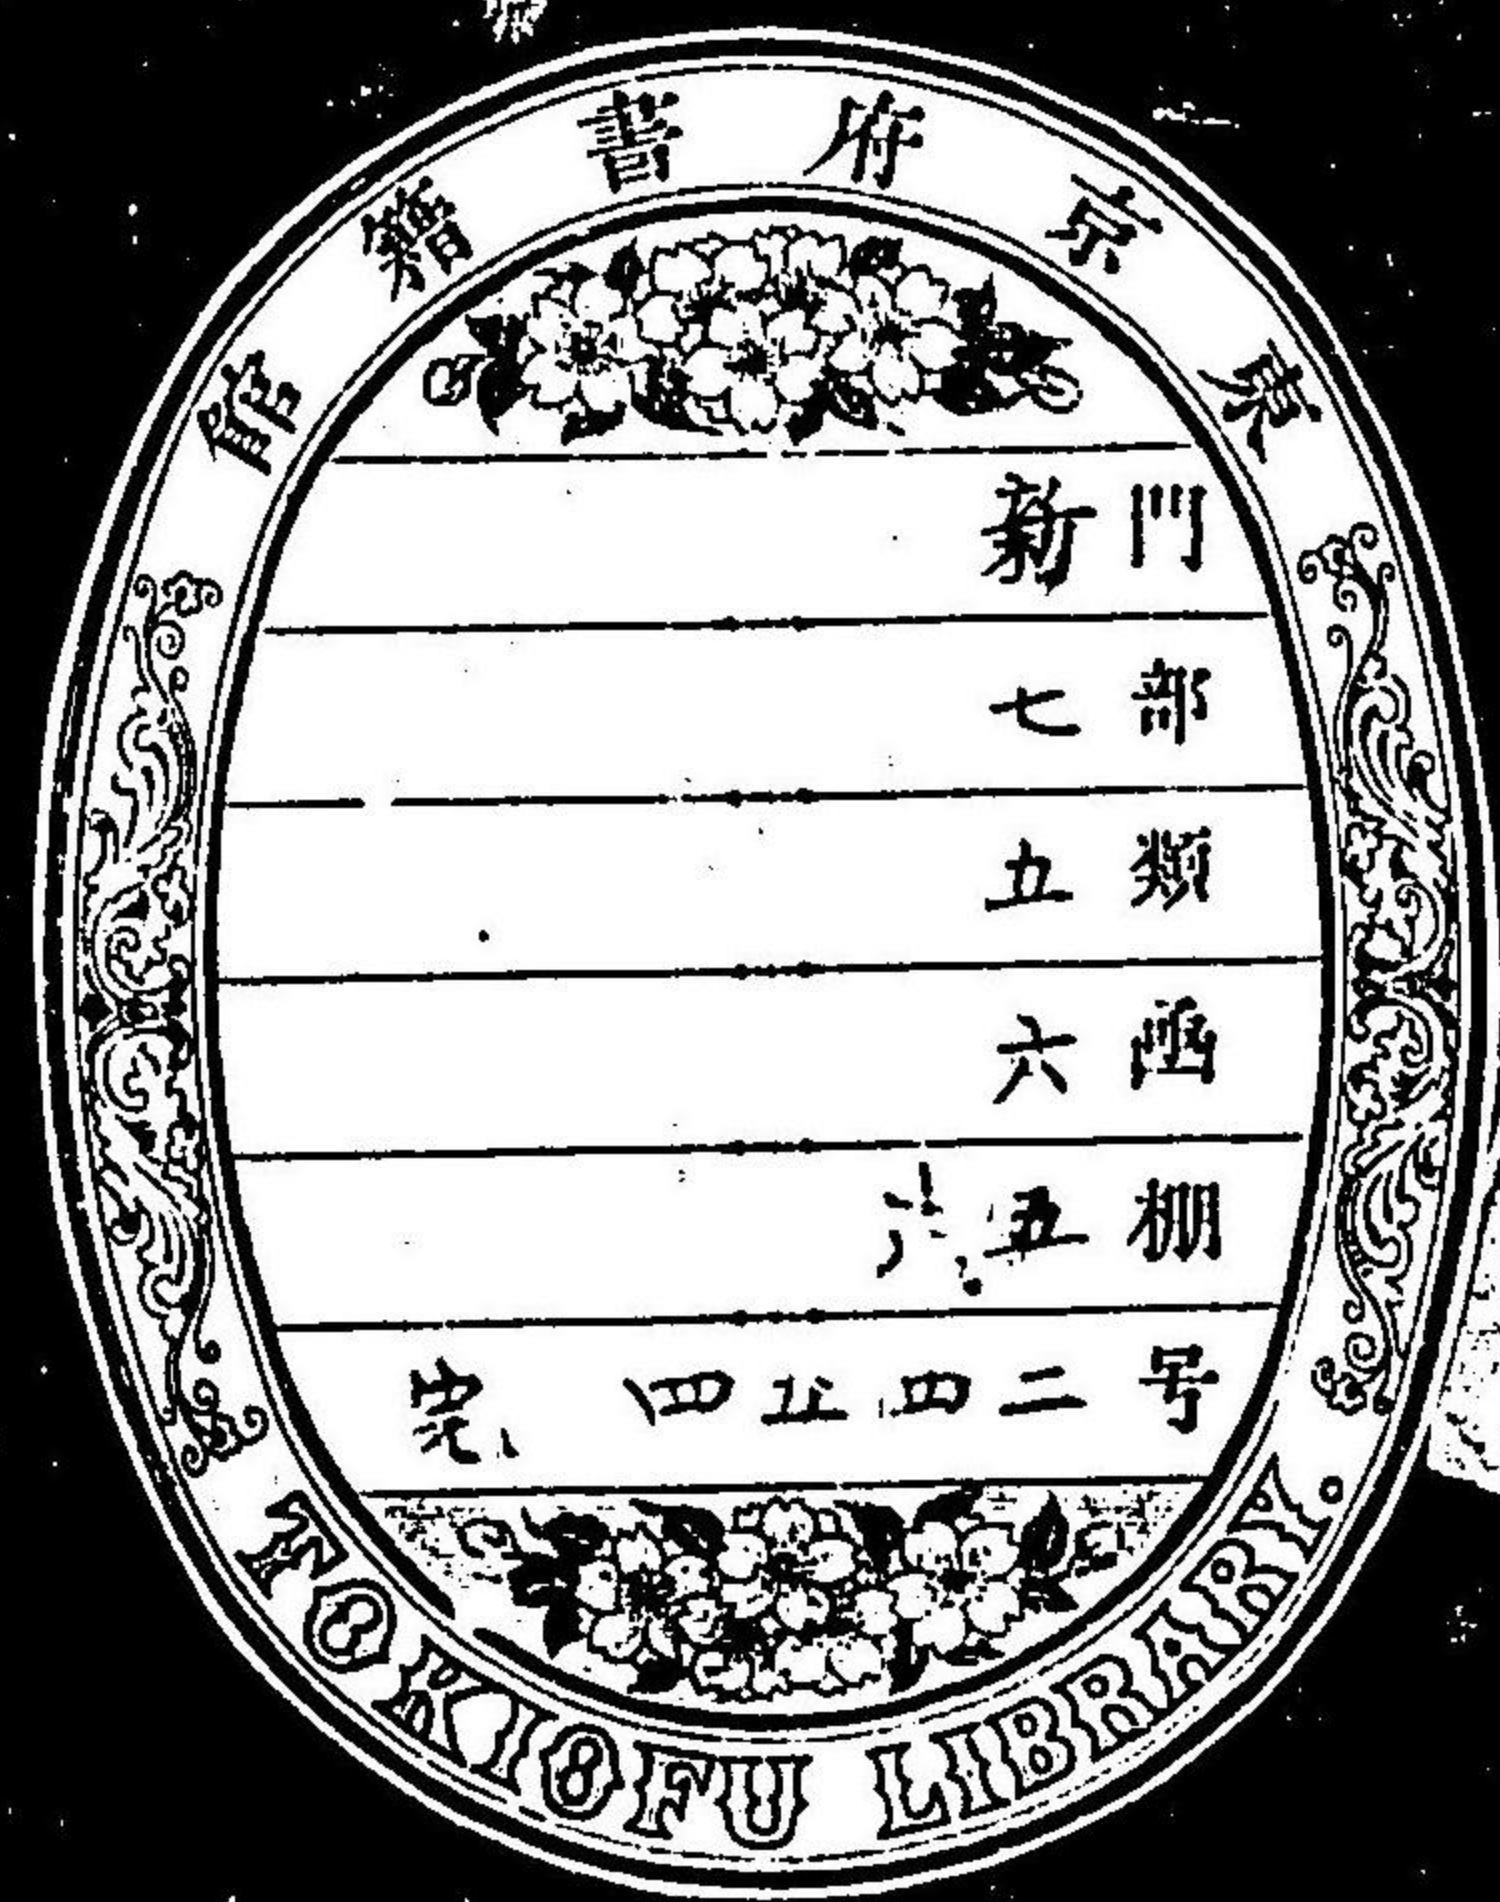 東京府書籍館
門 新
部 七
類 五
函 六
棚 五六
号 二四五四 完
TOKIOFU LIBRARY.